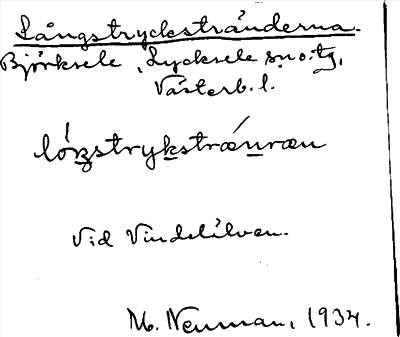 Långstryckstränderna.
Björksele, Lycksele sn o. tg,
Västerb. l.
lóŋstrykstrǽnræn
Vid Vindelälven.
M. Neuman, 1934.